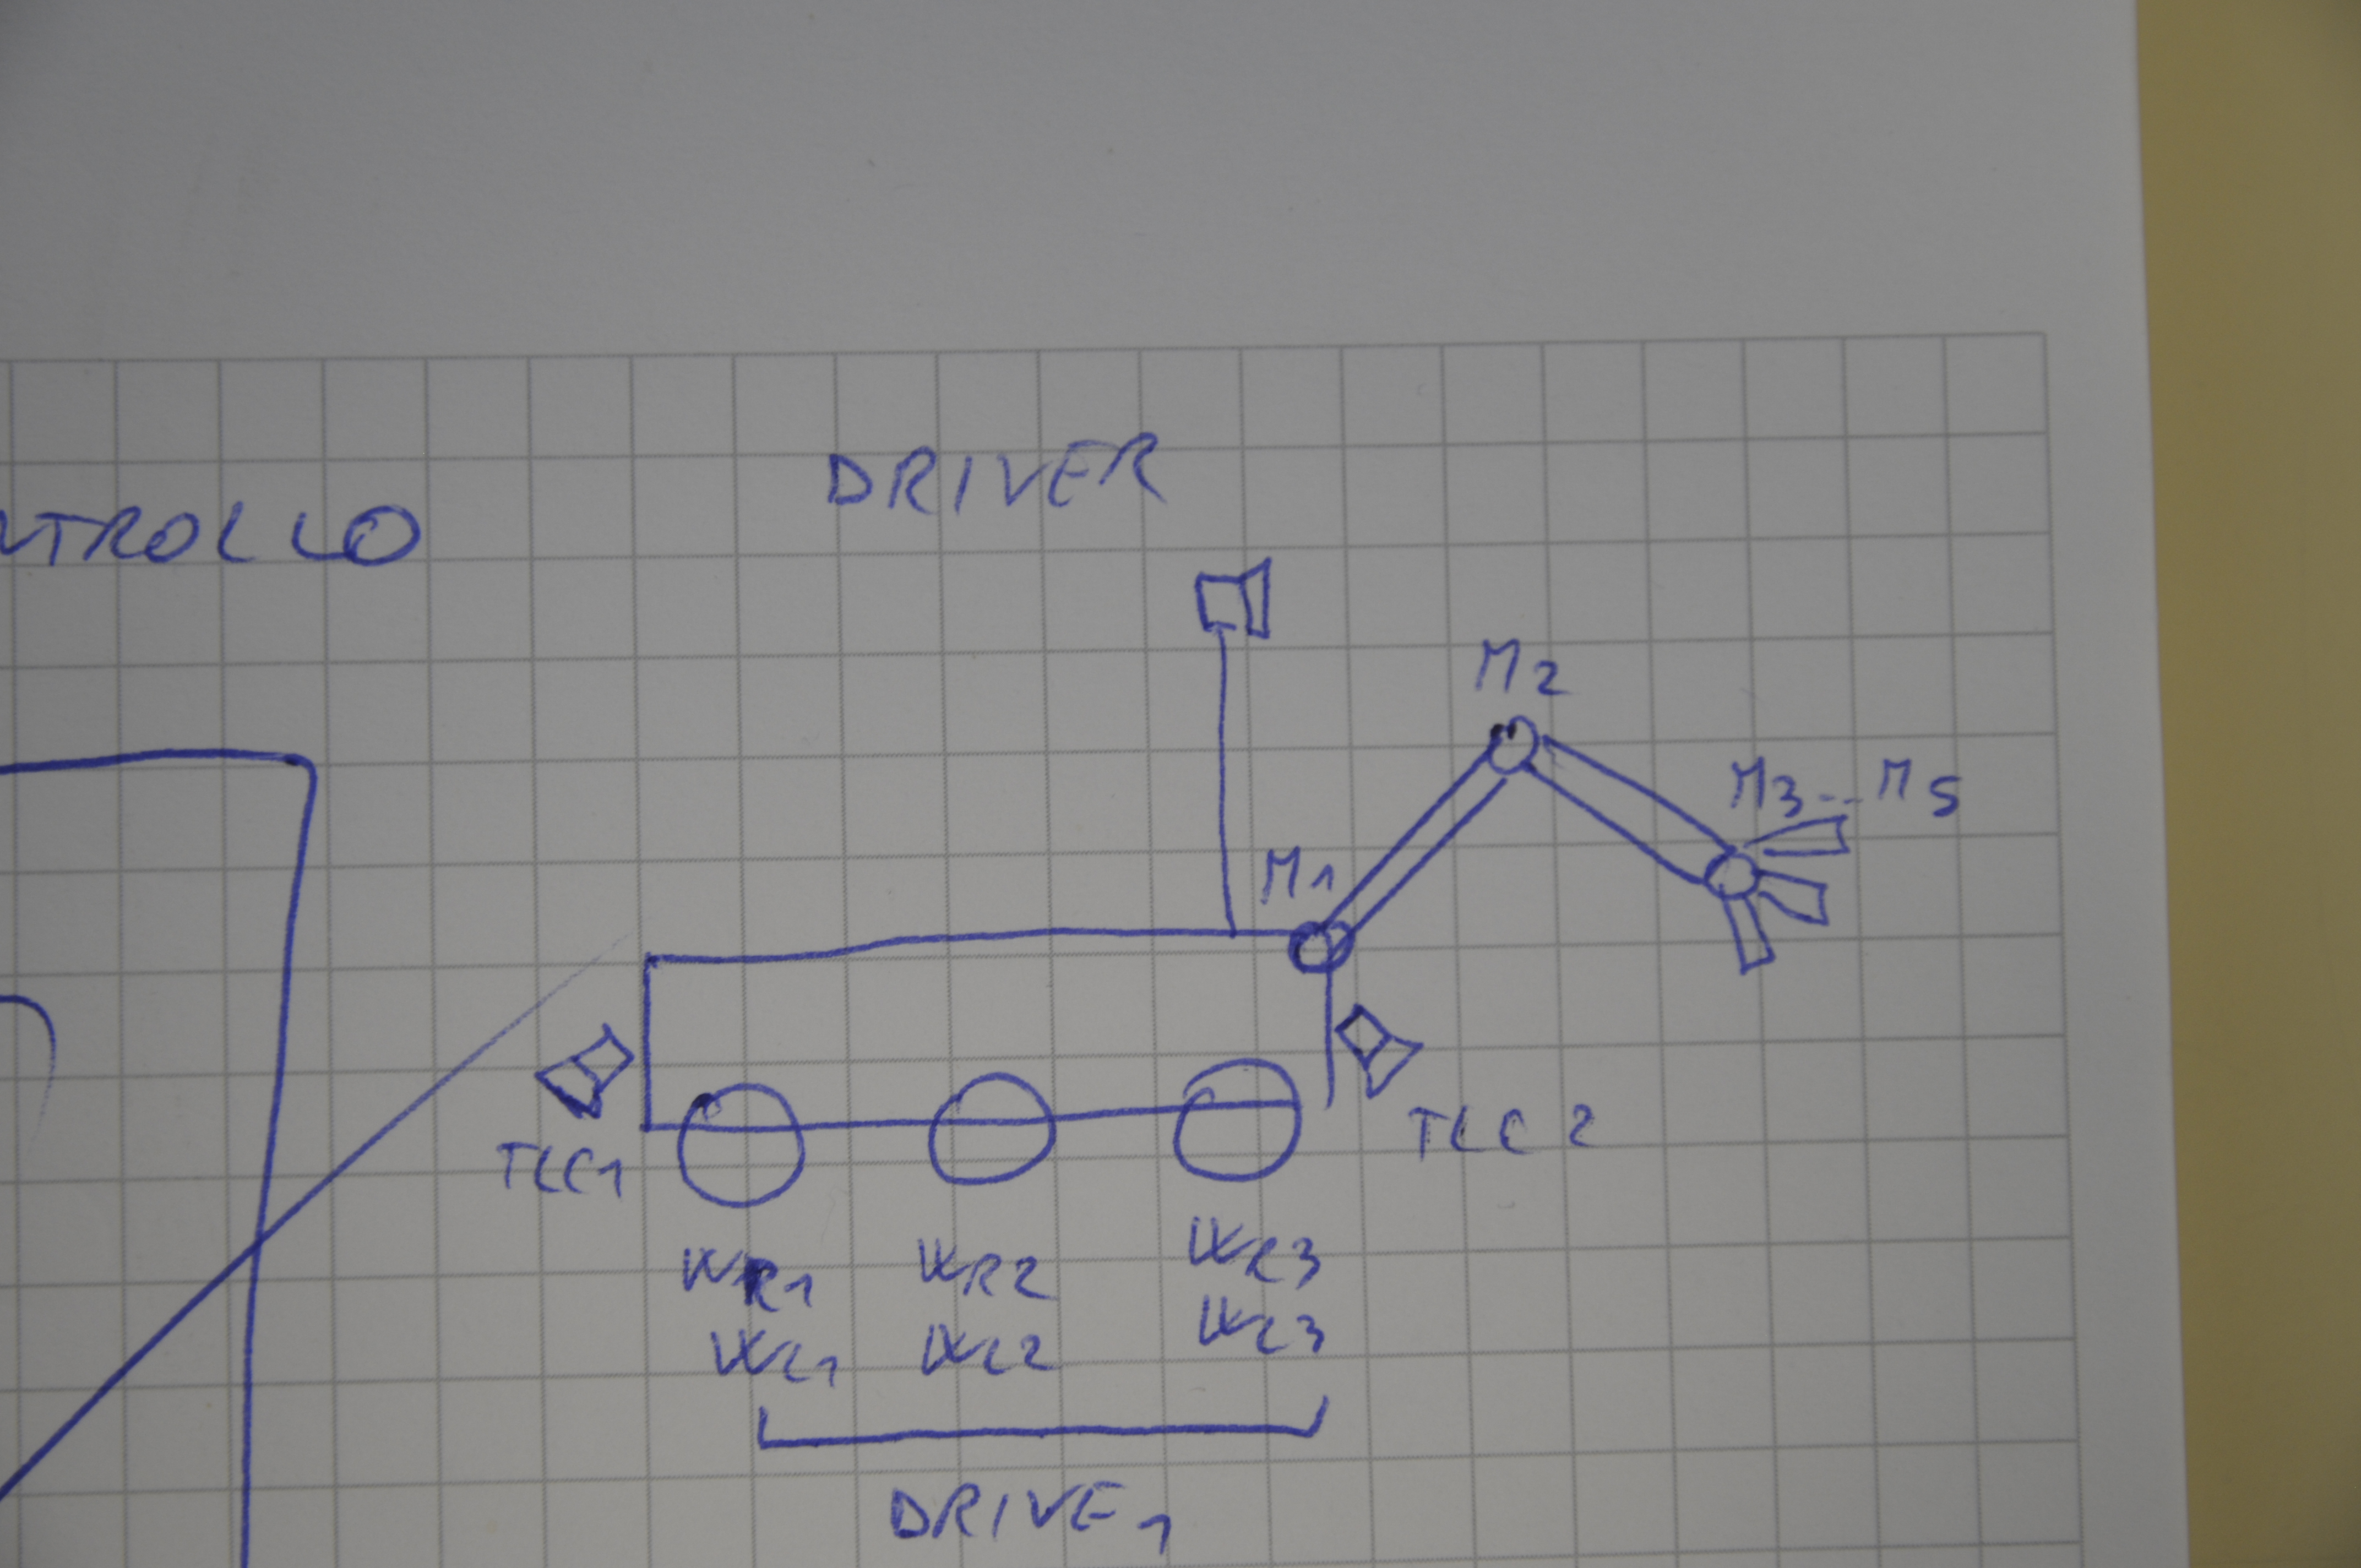 NTROLLO
DRIVER
M2
M3--M5
M1
TLC1
TLC2
WR1 WR2 WR3
WL1 WL2 WL3
DRIVE1